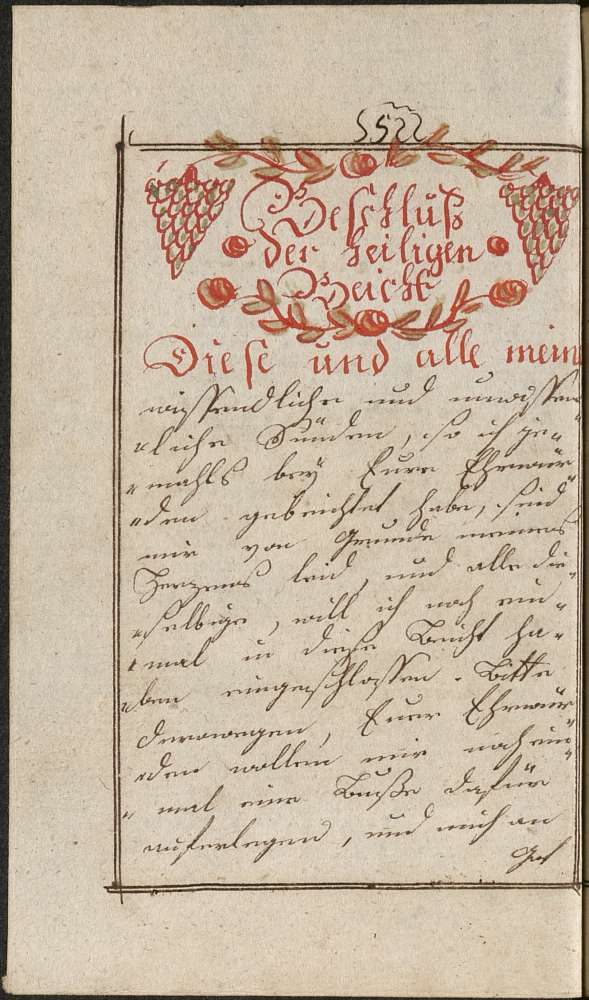 52
Beschluß
der heiligen
Beicht
Diese und alle mein
wissendliche und unwissen
"liche Sünden, so ich je="
"mahls bey Eurer Ehrwür
"den gebeichtet habe, seind
mir von Grunde meines
Herzens leid, und alle die=
"selbige, will ich noch ein="
"mal in diese Beicht ha="
"ben eingeschlossen. Bitte
derowegen, Euer Ehrwür
"den wollen mir noch ein="
"mal eine Buße dafür
auferlegen, und mich an